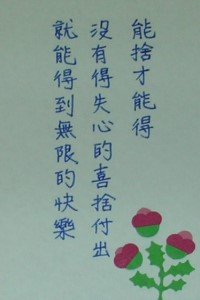 能捨才能得
沒有得失心的喜捨付出
就能得到無限的快樂